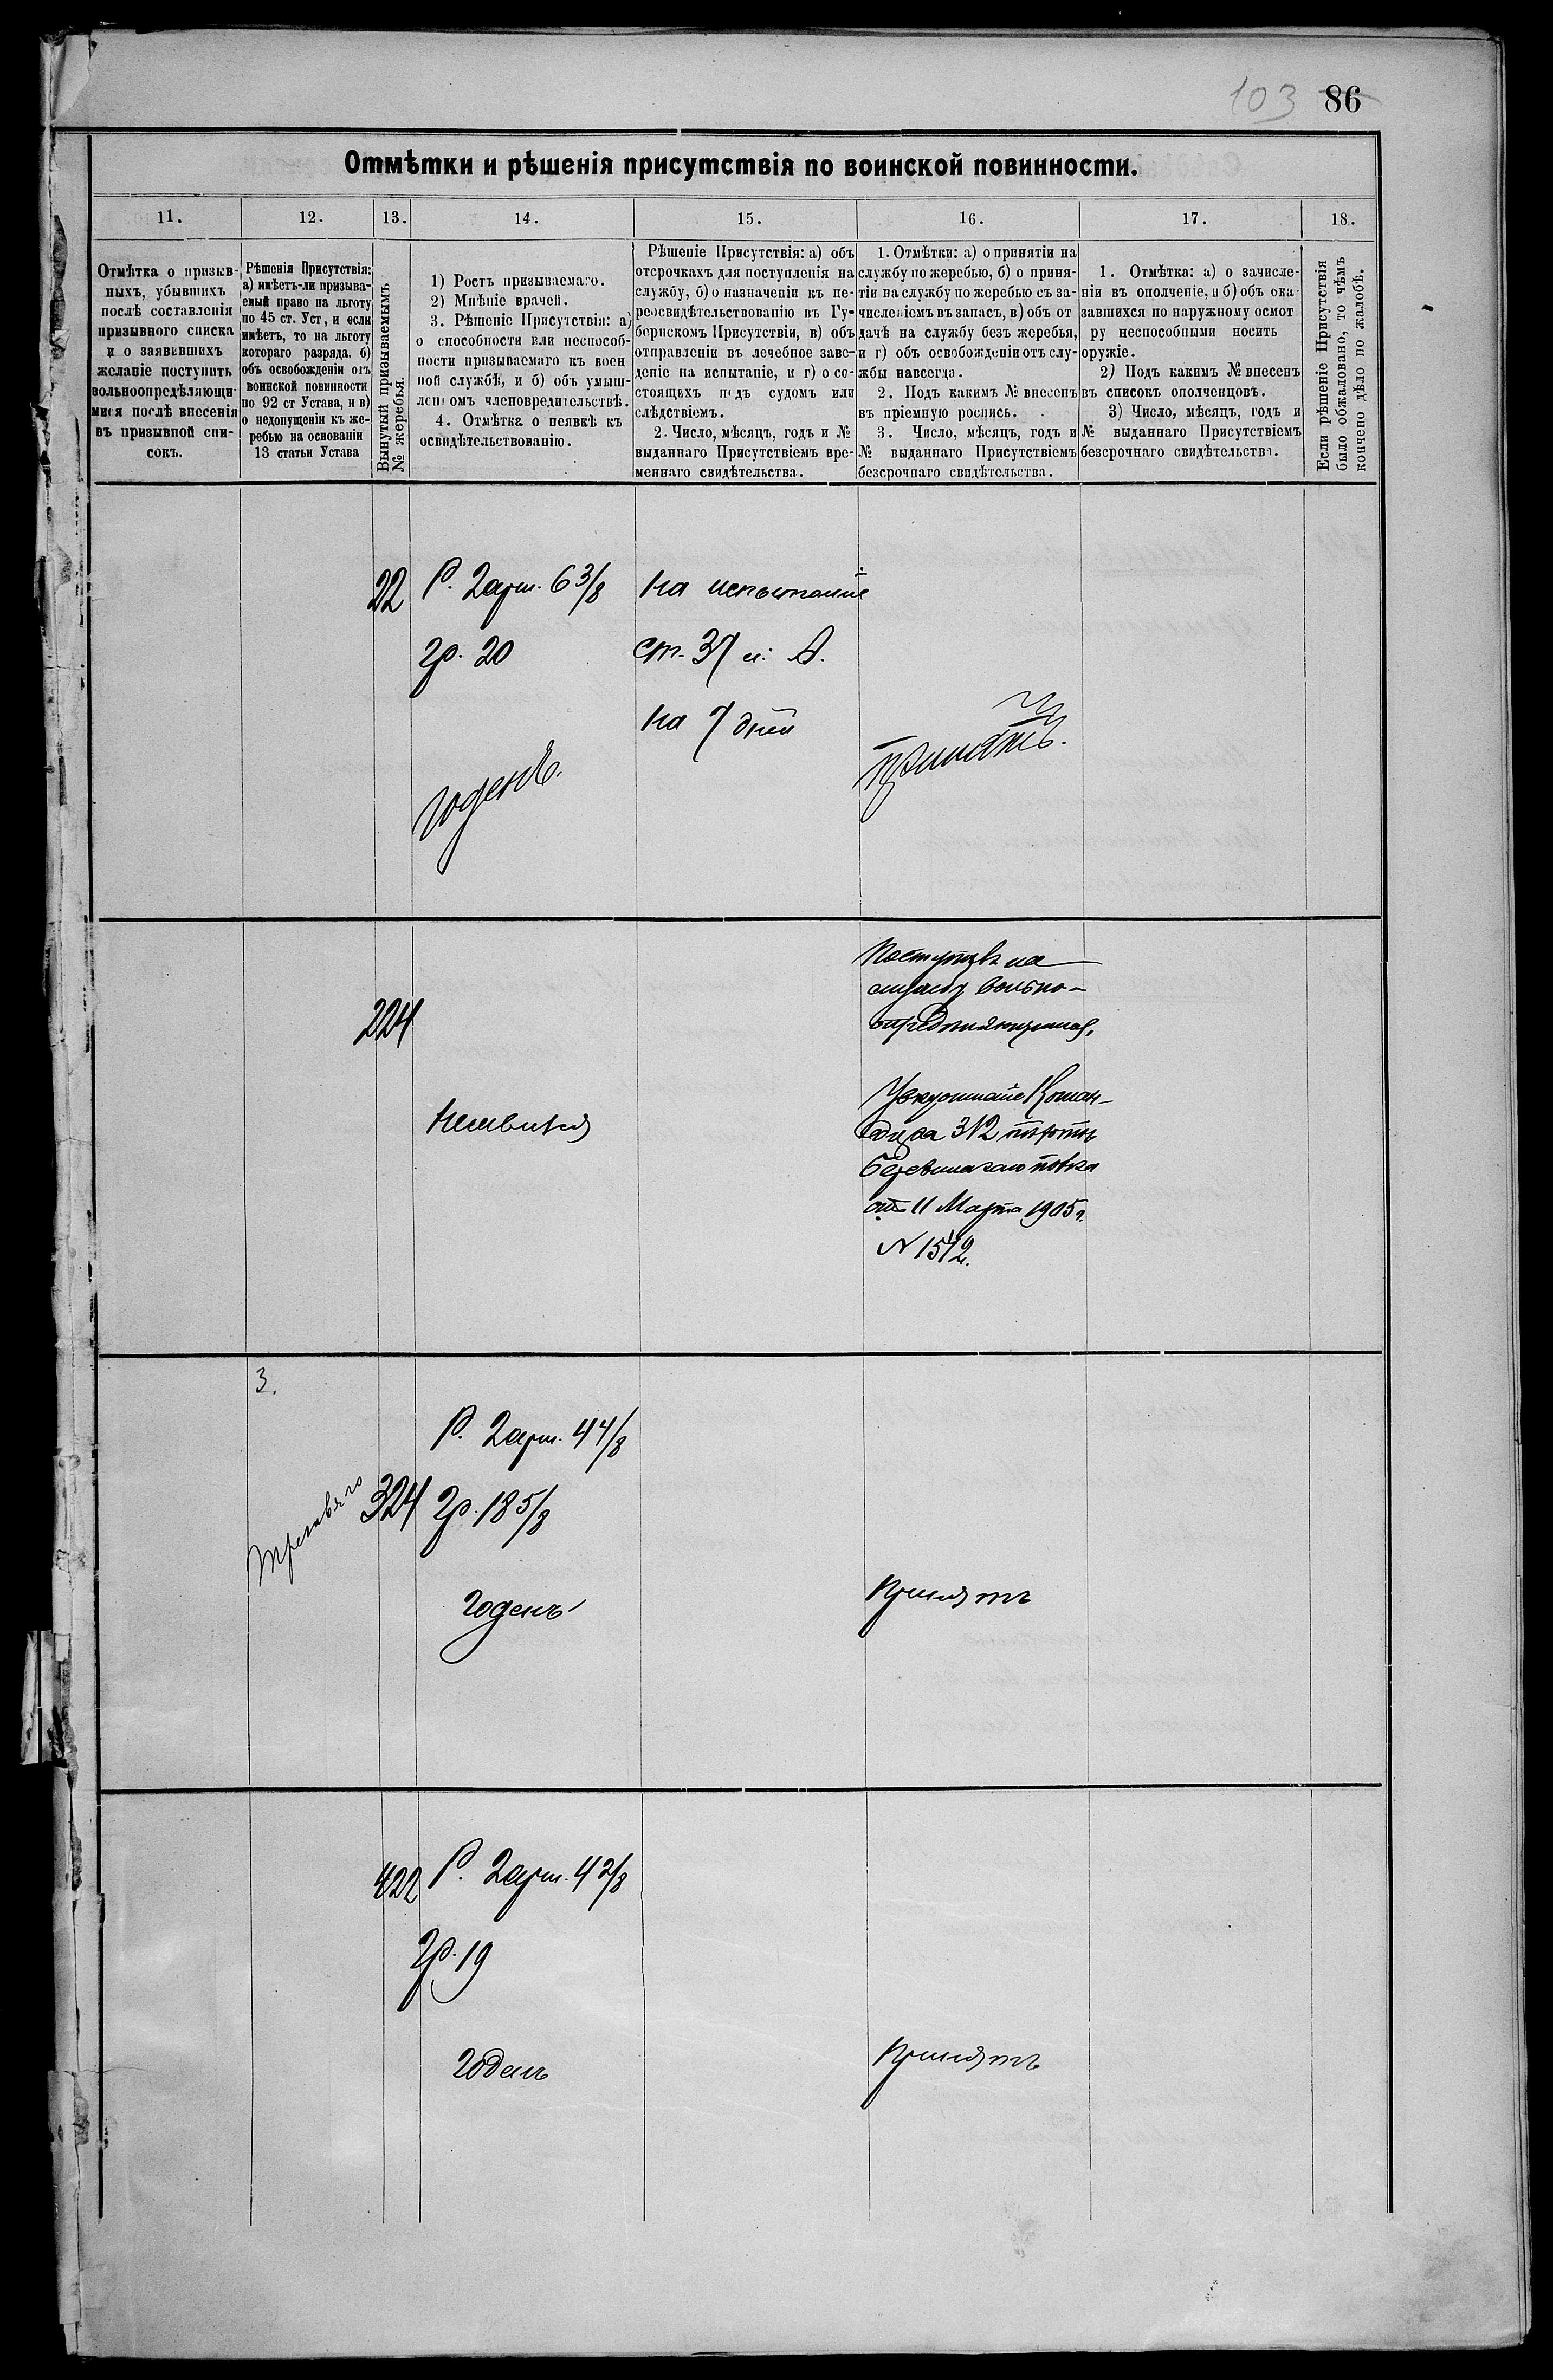 103 86
Отмѣтки и рѣшенія присутствія по воинской повинности.
11. 12. 13. 14. 15. 16. 17. 18.
Отмѣтка о призыв-
ныхъ, убывшихъ
послѣ составленія
призывного списка
и о заявившихъ
желаніе поступить
вольноопредѣляющи-
мися послѣ внесенія
въ призывной спи-
сокъ.
Рѣшенія Присутствія:
а) имѣетъ-ли призыва-
емый право на льготу
по 45 ст. Уст, и если
имѣетъ, то на льготу
котораго разряда. б)
объ освобожденіи отъ
воинской повинности
по 92 ст Устава, и в)
о недопущеніи къ же-
ребью на основаніи
13 статьи Устава
Вынутый призываемымъ
№ жеребья.
1) Ростъ призываемаго.
2) Мнѣніе врачей.
3. Рѣшеніе Присутствія: а)
о способности или неспособ-
ности призываемаго къ воен
ной службѣ, и б) объ умыш-
ленномъ членовредительствѣ.
4. Отмѣтка о неявкѣ къ
освидѣтельствованію.
Рѣшеніе Присутствія: а) объ
отсрочкахъ для поступленія на
службу, б) о назначеніи къ пе-
реосвидѣтельствованію въ Гу-
бернскомъ Присутствіи, в) объ
отправленіи въ лечебное заве-
деніе на испытаніе, и г) о со-
стоящихъ подъ судомъ или
слѣдствіемъ.
2. Число, мѣсяцъ, годъ и №
выданнаго Присутствіемъ вре-
меннаго свидѣтельства.
1. Отмѣтки: а) о принятіи на
службу по жеребью, б) о приня-
тіи на службу по жеребью съ за-
численіемъ въ запасъ, в) объ от
дачѣ на службу безъ жеребья,
и г) объ освобожденіи отъ слу-
жбы навсегда.
2. Подъ какимъ № внесенъ
въ пріемную роспись.
3. Число, мѣсяцъ, годъ и
№ выданнаго Присутствіемъ
безсрочнаго свидѣтельства.
1. Отмѣтка: а) о зачисле-
ніи въ ополченіе, и б) объ ока-
завшихся по наружному осмот
ру неспособными носить
оружіе.
2) Подъ какимъ № внесенъ
въ списокъ ополченцовъ.
3) Число, мѣсяцъ, годъ и
№ выданнаго Присутствіемъ
безсрочнаго свидѣтельства.
Если рѣшеніе Присутствія
было обжаловано, то чѣмъ
кончено дѣло по жалобѣ.
22
Р. 2 арш. 6 3/8
гр. 20
годенъ.
На испытаніе
ст. 37 л. А.
на 7 дней
Принятъ.
224
Неявился
Поступилъ на
службу вольно-
опредѣляющимся,
Увѣдомленіе Коман-
дира 312 пѣхотн.
Березинскаго полка
отъ 11 Марта 1905 г.
№ 1512.
3.
Третьяго
324
Р. 2 арш. 4 4/8
Гр. 18 5/8
Годенъ
Принятъ
422
Р. 2 арш. 4 2/8
Гр. 19
Годенъ
Принятъ